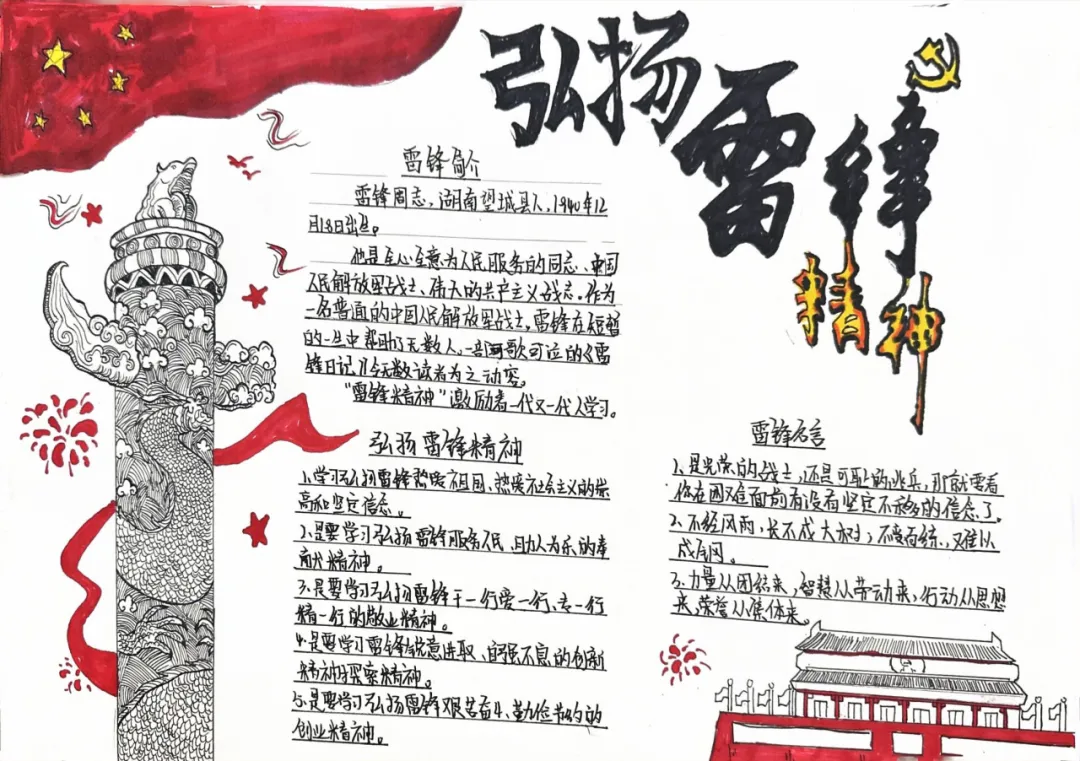 弘扬雷锋精神
雷锋简介
雷锋同志,湖南望城县人,1940年12
月18日出生。
他是全心全意为人民服务的同志、中国
人民解放军战士、伟大的共产主义战志。作为
一名普通的中国人民解放军战士,雷锋在短暂
的一生中帮助了无数人。一部可歌可泣的《雷
锋日记》令无数读者为之动容。
“雷锋精神”激励着一代又一代人学习。
弘扬雷锋精神
1、学习弘扬雷锋热爱祖国、热爱社会主义的崇
高和坚定信念。
2、是要学习弘扬雷锋服务人民、助人为乐的奉
献精神。
3、是要学习弘扬雷锋干一行爱一行、专一行
精一行的敬业精神。
4、是要学习雷锋锐意进取、自强不息的创新
精神探索精神。
5、是要学习弘扬雷锋艰苦奋斗、勤俭节约的
创业精神。
雷锋名言
1、是光荣的战士,还是可耻的逃兵,那就要看
你在困难面前有没有坚定不移的信念了。
2、不经风雨,长不成大树;不受百练,难以
成钢。
3、力量从团结来,智慧从劳动来,行动从思想
来,荣誉从集体来。